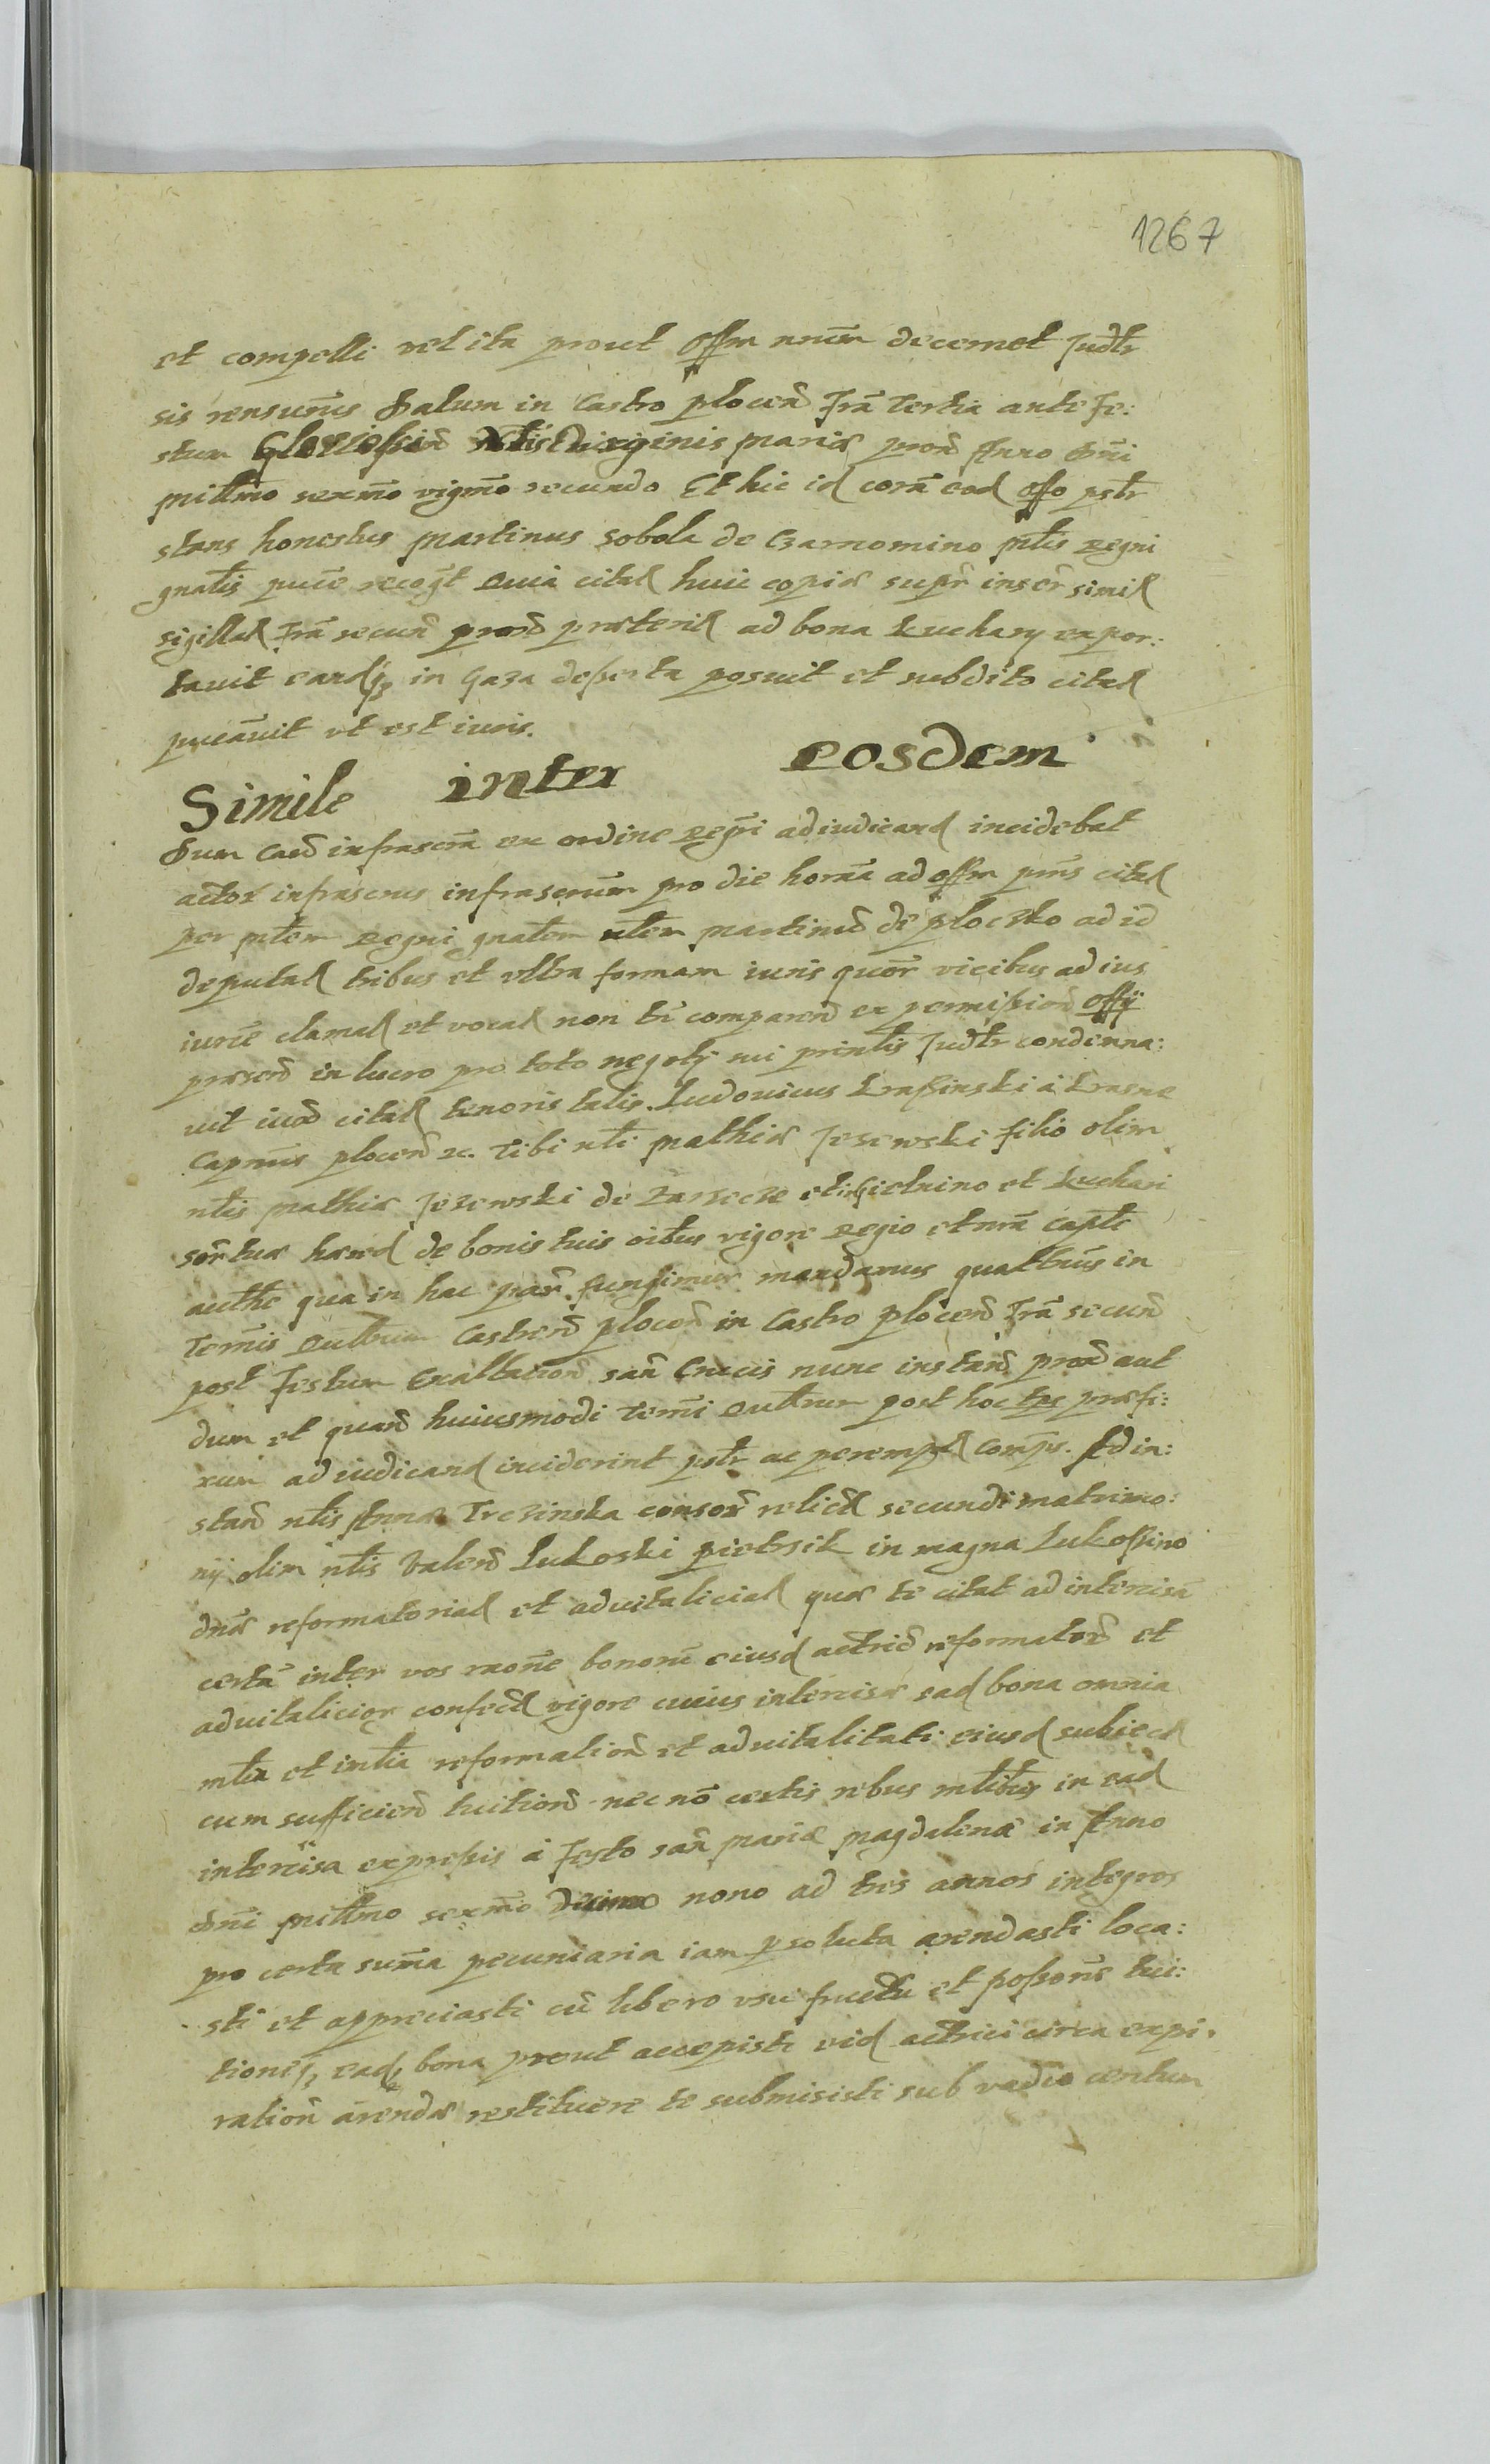 1267
et compelli vel ita prout Offm nrum decernet Judtr
sis rensurus Datum in Castro plocen fra Tertia ante fe:
stum Gloriossim Virginis Mariæ pron Anno Dni
Millmo sexmo vigmo secundo Et hic id cora eod offo pstr
stans honestus Martinus Sobola de Czarnomino mtlis Regni
gnalis puce recogt Quia citad huic copiæ supr inser simil
sigillad fra secun pron præterid ad bona Luchary expor:
tavit eandz in Gaza deserta posuit et subdito citad
puceavit vt est iuris.
Simile inter eosdem
Dum Causa infrascra ex ordine Regri adiudicand incidebat
actor infrascrus infrascrum pro die horna ad offm pns citad
per mtlem Regni gnalem ntlem Martinum de Ploczko ad id
deputad tribus et vltra formam iuris quor vicibus ad ius
iurce clamad et vocad non tn comparen ex permission offij
præsen in lucro pro toto negotj sui prinlis Judtr condemna:
vit iuxta citad tenoris talis. Ludovicus Krassinski à Krasne
Capneus plocen &c. Tibi ntli Mathiæ Jezewski filio olim
ntlis Mathiæ Jezewski de Zarzecze et Sietnino et Luchari
sortus hæred de bonis tuis oibus vigore Regio et nra Captli
authte qua in hac par fungimur mandamus quattnus in
Temis Qultrum Castren plocen in Castro plocen fra secun
post festum Exaltation san Crucis nunc instan pron aut
dum et quan huiusmodi Temi Qultrum post hoc tps præfi:
xum adiudicand inciderint pstr ac peremptd comps. Ad in:
stan ntlis Annæ Trczinska consor relictd secundi matrimo:
nij olim ntlis Valen Lukoski pietrsik in magna Lukossino
dnæ reformatoriad et advitaliciad quæ te citat ad intercisa
certa inter vos raone bonorum eiusd actricis reformator et
advitalicior confectd vigore cuius intercisæ ead bona omnia
mtlia et imtlia reformation et advitalitati eiusd subiectd
cum sufficien tuition nec no certis rebus mtlibus in ead
intercisa expressis à festo san Mariæ Magdalenæ in Anno
Dni Millmo sexmo Decimo nono ad tres annos integros
pro certa suma pecuniaria iam psoluta arendasti loca:
sti et appreciasti cu libero vsu fructu et possons tui:
tionez, eadz bona prout accepisti eid actrici circa expi:
ration arendæ restituere te submisisti sub vadio centum